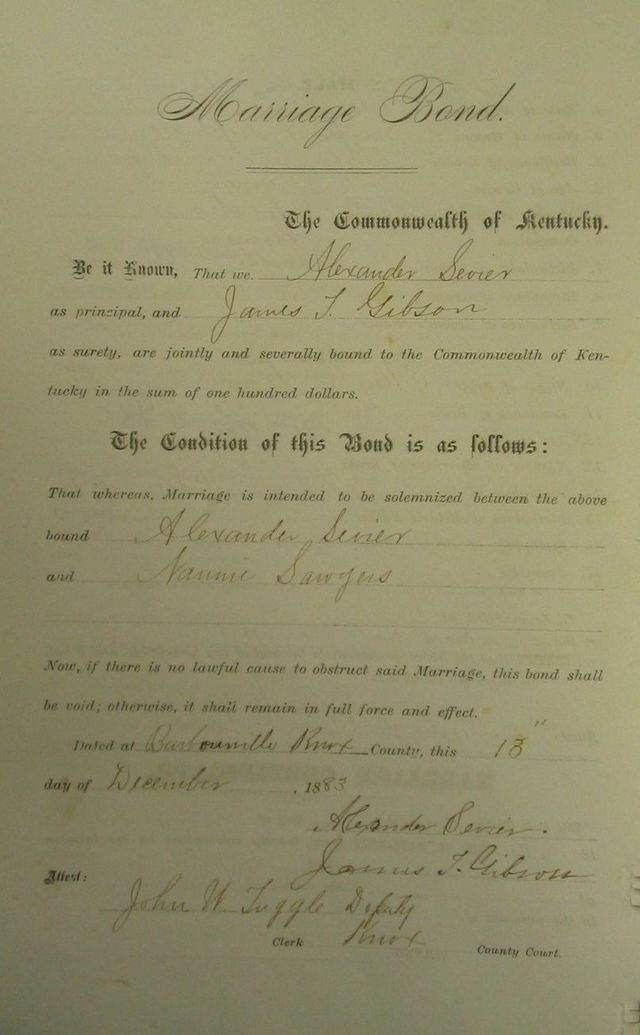 Marriage Bond.
The Commonwealth of Kentucky.
Be it Known, That we. Alexander Sevier
as principal, and James T. Gibson
as surety, are jointly and severally bound to the Commonwealth of Ken-
tucky in the sum of one hundred dollars.
The Condition of this Bond is as follows:
That whereas, Marriage is intended to be solemnized between the above
bound Alexander Sevier
and Nannie Sawyers
Now, if there is no lawful cause to obstruct said Marriage, this bond shall
be void; otherwise, it shall remain in full force and effect.
Dated at Barbourville Knox County, this 13"
day of December , 1883
Alexander Sevier.
James T. Gibson
Attest:
John W. Tuggle Deputy
Clerk Knox County Court.